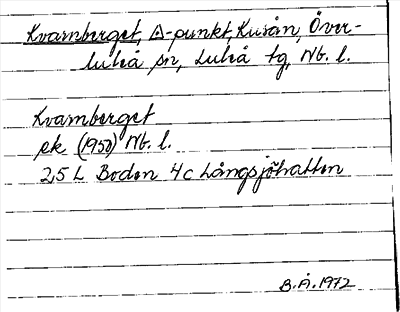 Kvarnberget, Δ-punkt, Kusån, Över-
luleå sn, Luleå tg, Nb. l.
Kvarnberget
ek (1950) Nb. l.
25 L Boden 4c Långsjöhatten
B.Å. 1972